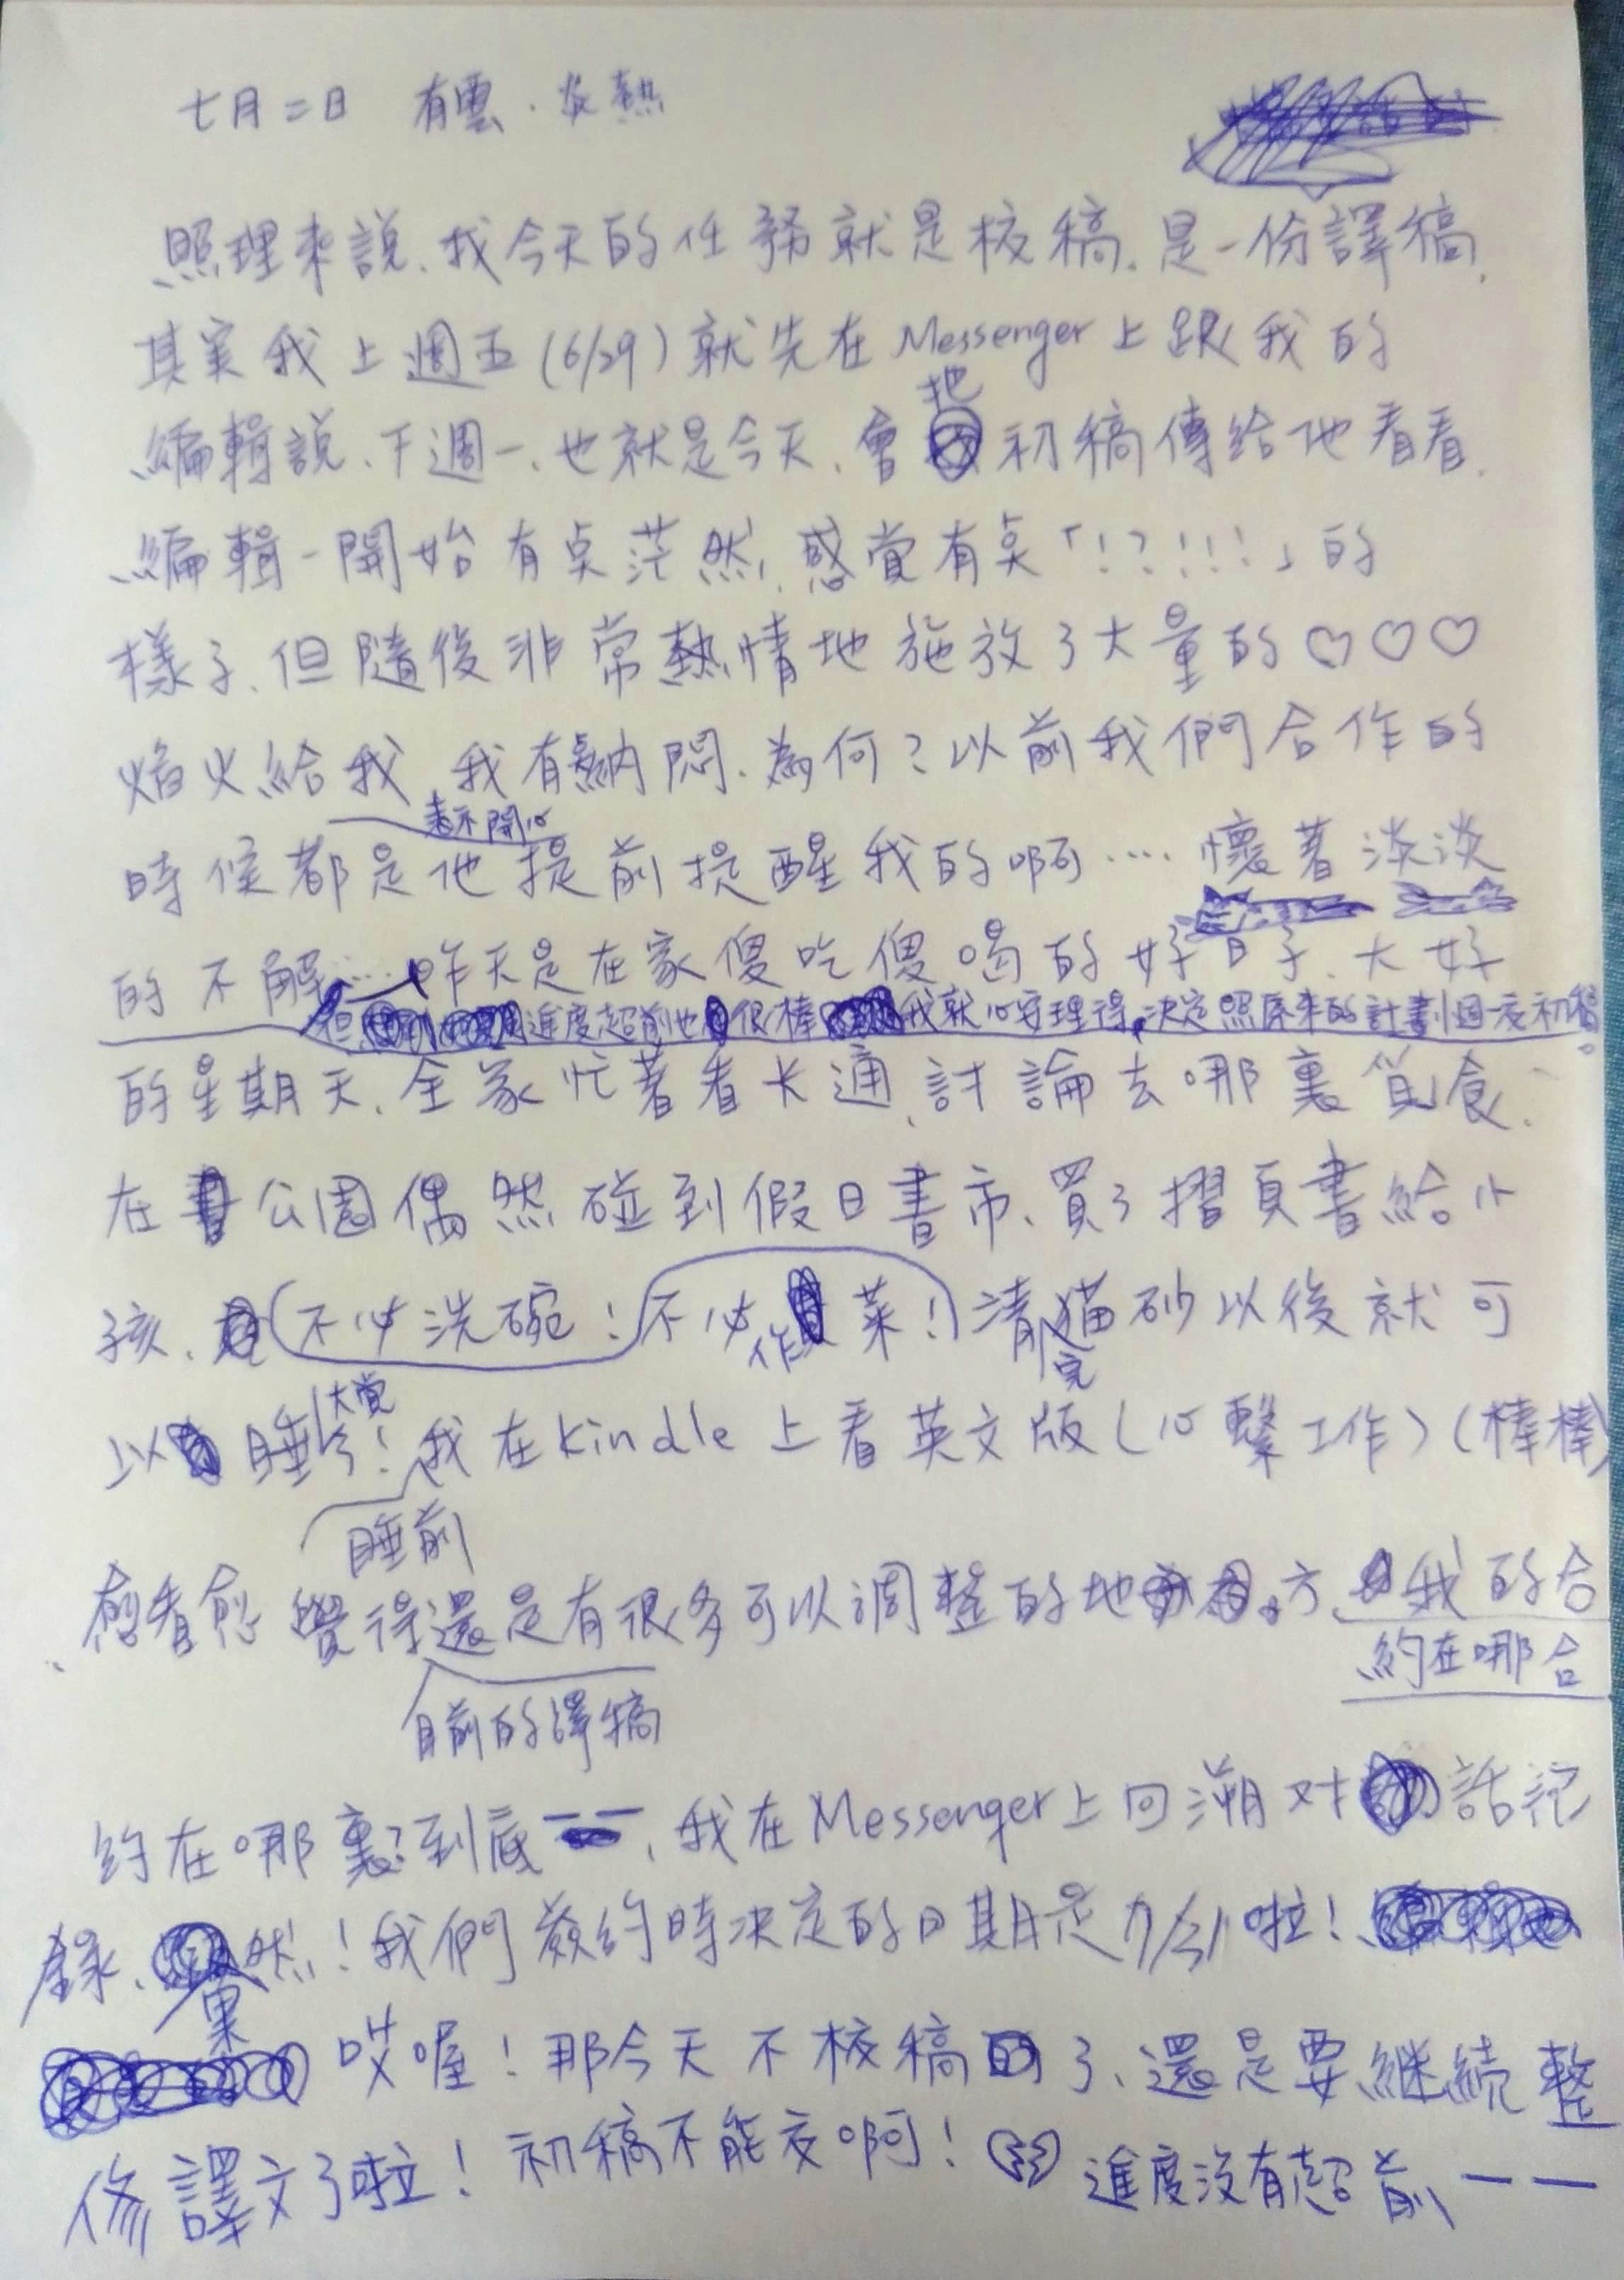 七月二日 有雲．炎熱
照理來說、我今天的任務就是核稿。是一份譯稿、
其実我上週五(6/29)就先在Messenger上跟我的
編輯說、下週一、也就是今天、會把初稿傳給他看看、
編輯一開始有点茫然、感覚有点「!?!!!」的
樣子、但隨後非常熱情地施放了大量的♡♡♡
焰火給我、我有点納悶、為何？以前我們合作的
表示開心
時候都是他提前提醒我的啊‥‥懷著淡淡
的不解‥‥昨天是在家傻吃傻喝的好日子、大好
但進度超前也很棒我就心安理得、決定照原來的計劃週一交初稿。
的星期天、全家忙著看卡通、討論去哪裏覓食、
在公園偶然碰到假日書市、買了摺頁書給小
孩、(不必洗碗！不必作菜！)清完貓砂以後就可
以睡大覚！我在kindle上看英文版(心繫工作)(棒棒)
睡前
愈看愈覺得還是有很多可以調整的地方、我的合
約在哪合
目前的譯稿
約在哪裏？到底一一、我在Messenger上回溯对話記
錄、果然！我們簽約時決定的日期是7/31啦！
哎喔！那今天不核稿了、還是要継続整
修譯文了啦！初稿不能交啊！進度沒有超前一一